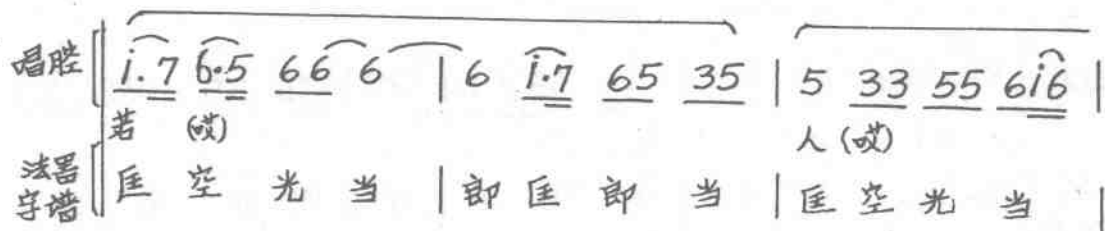 唱腔 i.7 6.5 66 6 | 6 i.7 65 35 | 5 33 55 6i6 |
若 (哎) 人 (哎)
法器字谱 匡 空 光 当 | 郎 匡 郎 当 | 匡 空 光 当 |